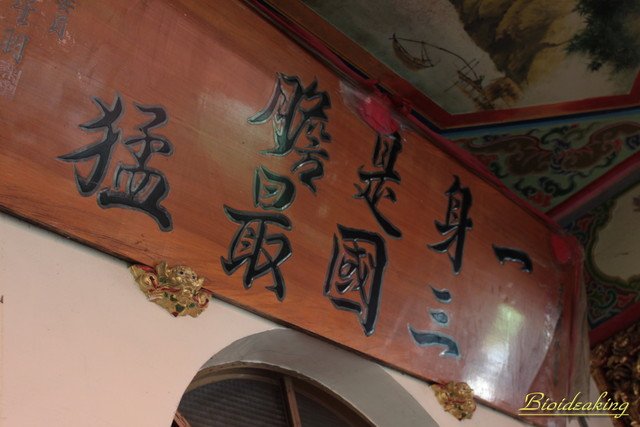 一身是膽
三國最猛
Bioideaking